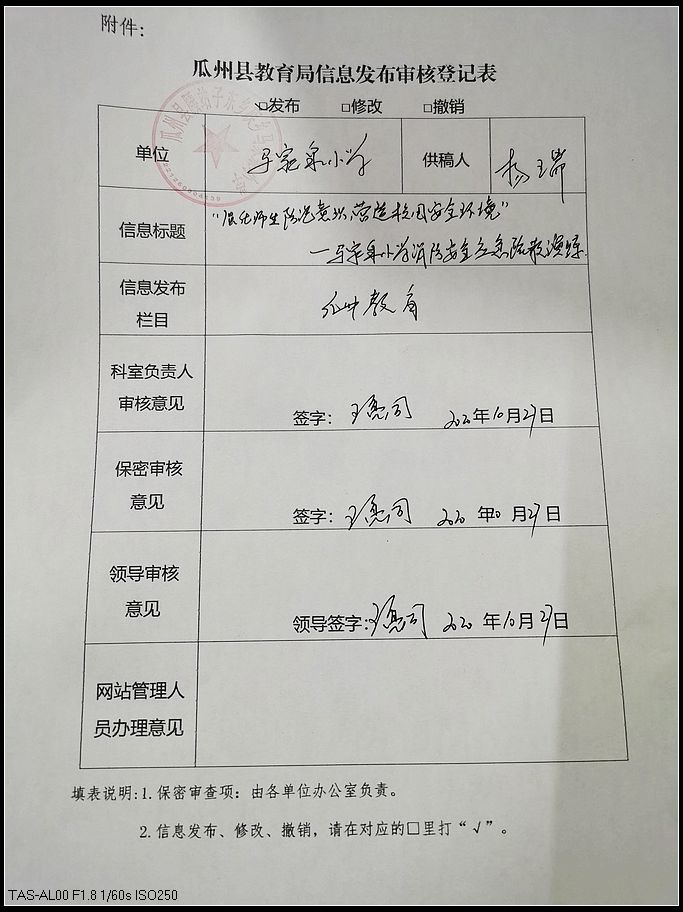 附件：
瓜州县教育局信息发布审核登记表
□发布 □修改 □撤销
单位 供稿人 杨瑞
信息标题 “强化师生防范意识 营造校园安全环境”
小学消防安全应急疏散演练
信息发布
栏目 瓜州教育
科室负责人
审核意见
签字： 2020年10月27日
保密审核
意见
签字： 2020年10月27日
领导审核
意见
领导签字： 2020年10月27日
网站管理人
员办理意见
填表说明：1. 保密审查项：由各单位办公室负责。
2. 信息发布、修改、撤销，请在对应的□里打“√”。
TAS-AL00 F1.8 1/60s ISO250